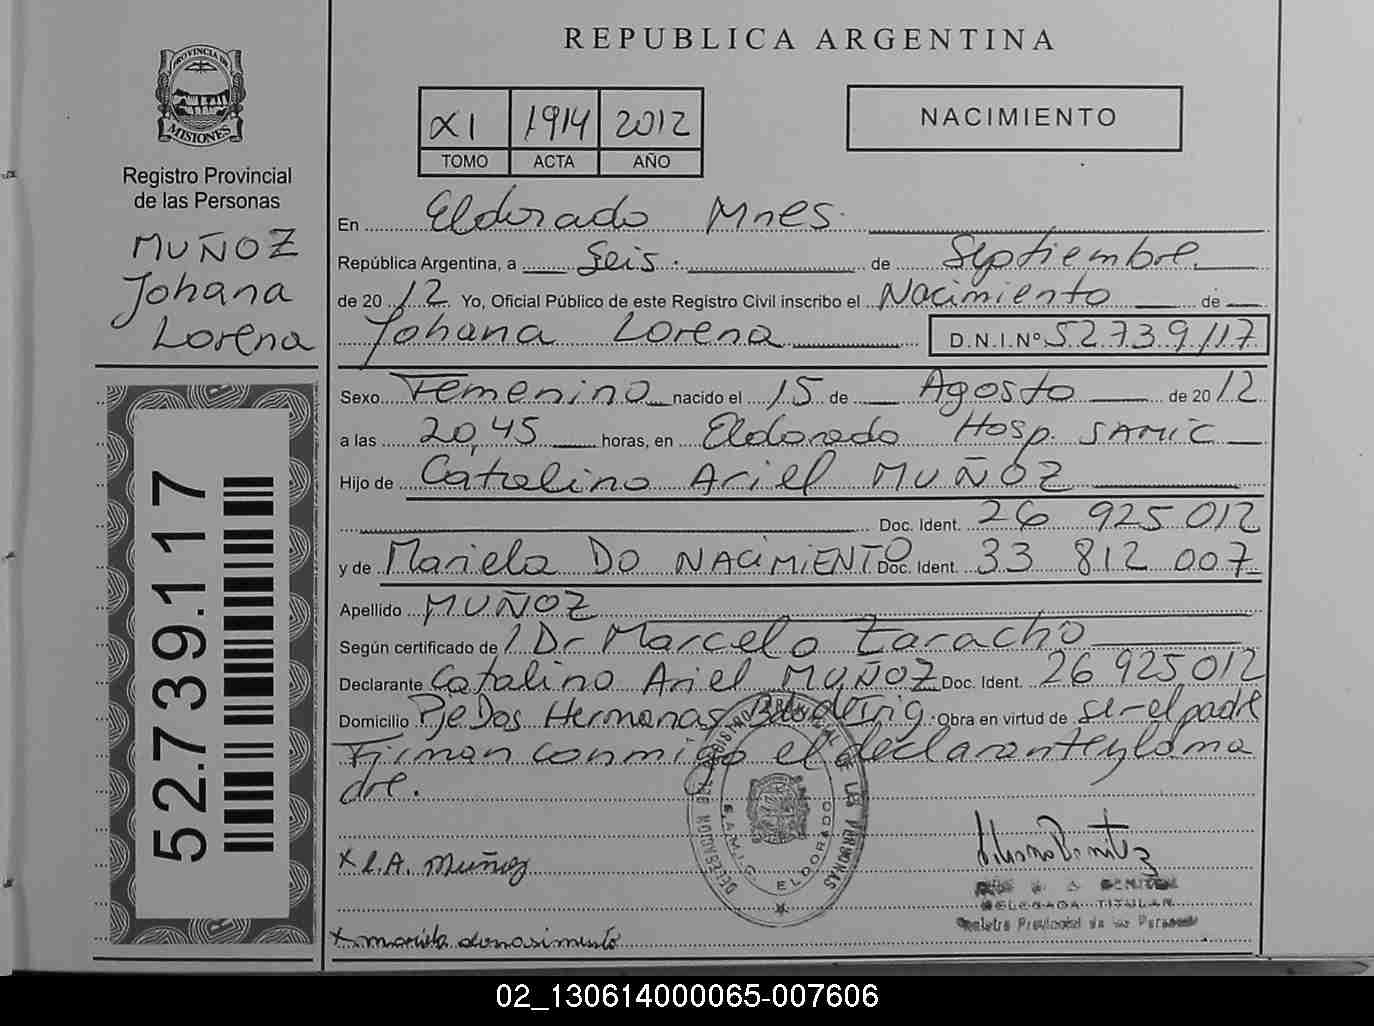 REPUBLICA ARGENTINA
PROVINCIA DE
MISIONES
Registro Provincial
de las Personas
MUÑOZ
Johana
Lorena
52.739.117
XI 1914 2012
TOMO ACTA AÑO
NACIMIENTO
En Eldorado Mnes.
República Argentina, a Seis. de Septiembre
de 20 12 Yo, Oficial Público de este Registro Civil inscribo el Nacimiento de
Johana Lorena D.N.I.Nº 52.739.117
Sexo Femenino nacido el 15 de Agosto de 20 12
a las 20,45 horas, en Eldorado Hosp. SAMIC
Hijo de Catalino Ariel MUÑOZ
Doc. Ident. 26 925 012
y de Mariela DO NACIMIENTO Doc. Ident. 33 812 007
Apellido MUÑOZ
Según certificado de l Dr Marcelo Zaracho
Declarante Catalino Ariel MUÑOZ Doc. Ident. 26 925 012
Domicilio Pje Dos Hermanas Obra en virtud de ser el padre
Firman conmigo el declarante y la ma
dre.
DELEGADO REGISTRO PROVINCIAL DE LAS PERSONAS
S.A.M.I.C. ELDORADO
x C.A. Muñoz
x mariela donasimento
DELEGADA TITULAR
Registro Provincial de las Personas
02_130614000065-007606